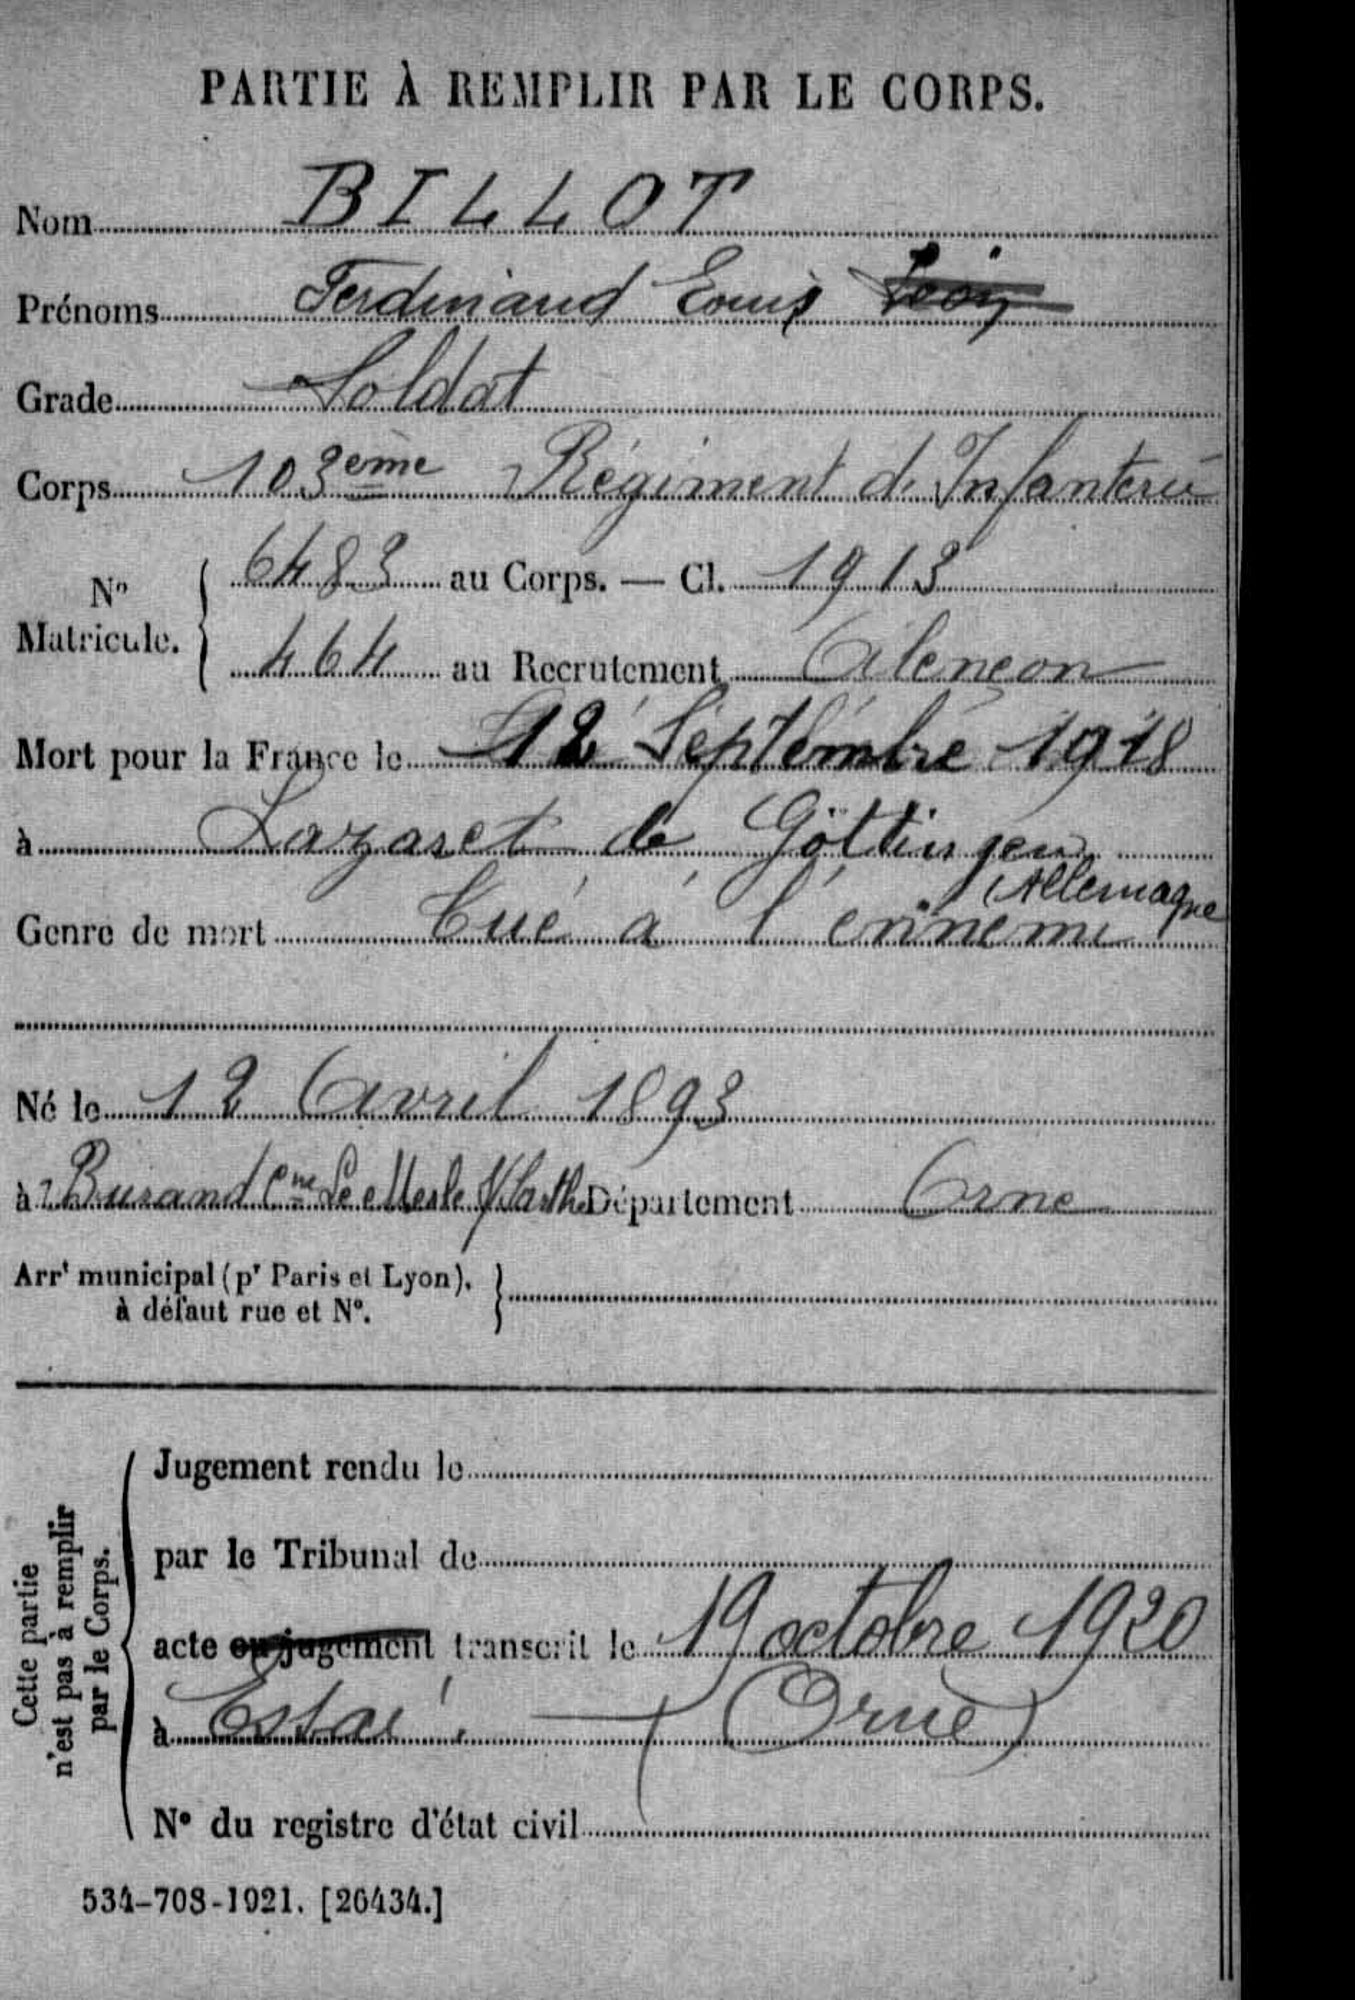 PARTIE À REMPLIR PAR LE CORPS.
Nom BILLOT
Prénoms Ferdinand Louis Léon
Grade Soldat
Corps 103ème Régiment d'Infanterie
N° Matricule. 6483 au Corps. — Cl. 1913
464 au Recrutement Alençon
Mort pour la France le 12 Septembre 1918
à Lazaret de Göttingen
Allemagne
Genre de mort Tué à l'ennemi
Né le 12 Avril 1893
à Bursard Cne Le Mesle s/Sarthe Département Orne
Arrt municipal (pr Paris et Lyon),
à défaut rue et N°.
Cette partie
n'est pas à remplir
par le Corps.
Jugement rendu le
par le Tribunal de
acte ou jugement transcrit le 19 octobre 1920
à Essai (Orne)
N° du registre d'état civil
534-708-1921. [26434.]